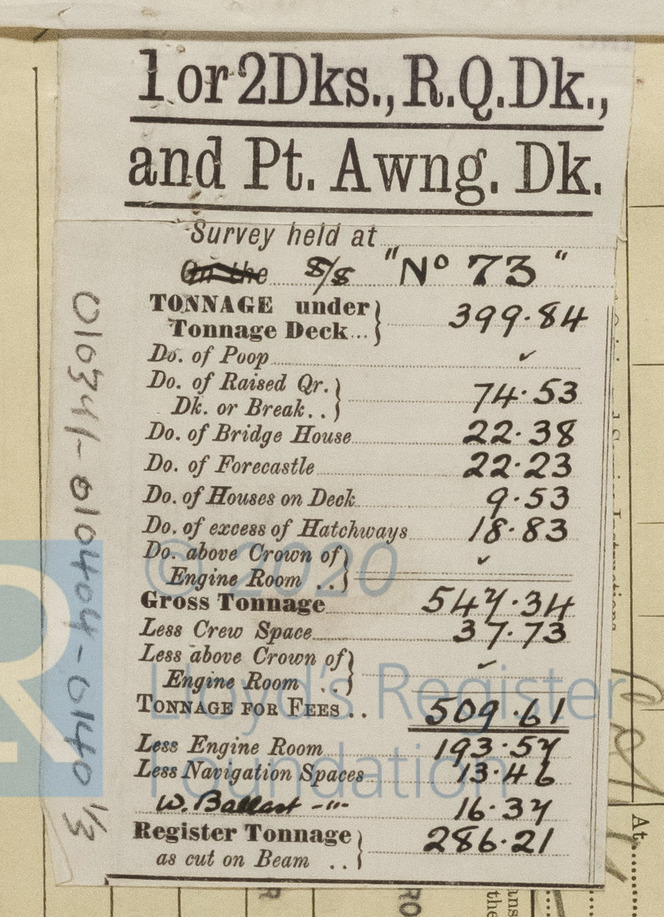 1 or 2 Dks., R.Q.Dk.,
and Pt. Awng. Dk.
Survey held at
On the S/S "No 73"
TONNAGE under
Tonnage Deck... 399.84
Do. of Poop ✓
Do. of Raised Qr.
Dk. or Break.. 74.53
Do. of Bridge House 22.38
Do. of Forecastle 22.23
Do. of Houses on Deck 9.53
Do. of excess of Hatchways 18.83
Do. above Crown of
Engine Room .. ✓
Gross Tonnage 547.34
Less Crew Space 37.73
Less above Crown of
Engine Room .. ✓
TONNAGE FOR FEES .. 509.61
Less Engine Room 193.57
Less Navigation Spaces 13.46
W. Ballast -"- 16.37
Register Tonnage
as cut on Beam .. 286.21
010341-010404-0140 1/3
At
© 2020
Lloyd's Register
Foundation